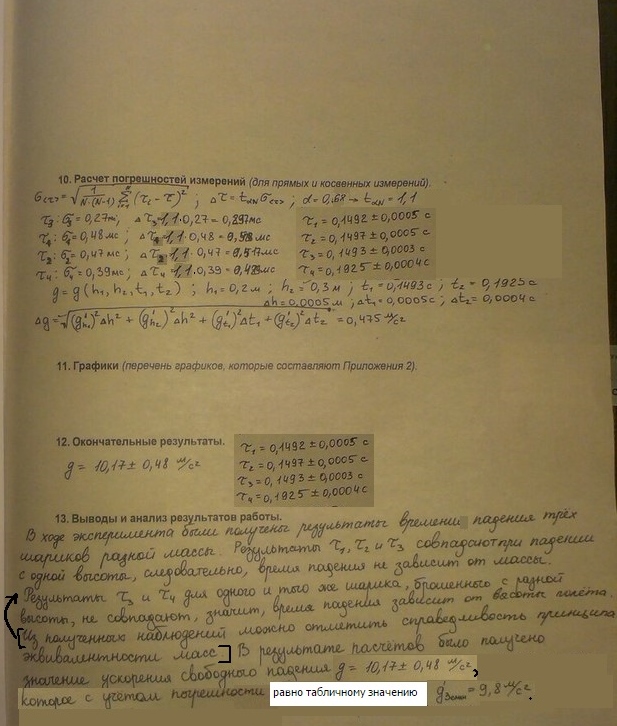 10. Расчет погрешностей измерений (для прямых и косвенных измерений).
σ<τ> = √(1/(N·(N-1)) Σ (τi - τ)²) ; Δτ = tαN σ<τ> ; α = 0,68 → tαN = 1,1
0,27мс, 1,1·0,27 = 0,297мс
τ1 = 0,1492 ± 0,0005 с
0,48мс, 1,1·0,48 =
τ2 = 0,1497 ± 0,0005 с
0,47мс, 1,1·0,47 = 0,517мс
τ3 = 0,1493 ± 0,0003 с
τ4: 0,39мс, Δτ4 = 1,1·0,39 = 0,429мс
τ4 = 0,1925 ± 0,0004 с
g = g(h1, h2, t1, t2) ; h1 = 0,2 м ; h2 = 0,3 м ; t1 = 0,1493 с ; t2 = 0,1925 с
Δh = 0,0005 м ; Δt1 = 0,0005 с ; Δt2 = 0,0004 с
Δg = √((g'h1)² Δh² + (g'h2)² Δh² + (g't1)² Δt1 + (g't2)² Δt2) = 0,475 м/с²
11. Графики (перечень графиков, которые составляют Приложения 2).
12. Окончательные результаты.
τ1 = 0,1492 ± 0,0005 с
g = 10,17 ± 0,48 м/с²
τ2 = 0,1497 ± 0,0005 с
τ3 = 0,1493 ± 0,0003 с
τ4 = 0,1925 ± 0,0004 с
13. Выводы и анализ результатов работы.
В ходе эксперимента были получены результаты времени падения трёх
шариков разной массы. Результаты τ1, τ2 и τ3 совпадают при падении
с одной высоты, следовательно, время падения не зависит от массы.
Результаты τ3 и τ4 для одного и того же шарика, брошенного с разной
высоты, не совпадают, значит, время падения зависит от высоты полёта.
[Из полученных наблюдений можно отметить справедливость принципа
эквивалентности масс] В результате расчётов было получено
значение ускорения свободного падения g = 10,17 ± 0,48 м/с²,
которое с учётом погрешности равно табличному значению gЗемли = 9,8 м/с².